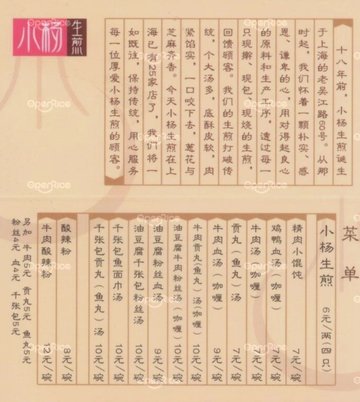 小杨生煎
十八年前，小杨生煎诞生
于上海的老吴江路60号。从那
时起，我们怀着一颗朴实、感
恩、谦卑的心，用对得起良心
的原料和生产工序，透过每一
只现擀、现包、现烧的生煎，
回馈顾客。我们的生煎打破传
统，个大汤多，底酥皮软，肉
紧馅实，一口咬下去，葱花与
芝麻齐香。今天小杨生煎在上
海已有25家店了，我们将一
如既往，保持传统，用心服务
每一位厚爱小杨生煎的顾客。
菜单
小杨生煎 6元/两(四只)
精肉小馄饨 7元/碗
鸡鸭血汤（咖喱） 7元/碗
牛肉汤（咖喱） 7元/碗
贡丸（鱼丸）汤 7元/碗
牛肉血汤（咖喱） 9元/碗
牛肉贡丸（鱼丸）汤（咖喱） 10元/碗
油豆腐牛肉粉丝汤（咖喱） 10元/碗
油豆腐粉丝血汤 9元/碗
油豆腐千张包粉丝汤 10元/碗
千张包鱼面巾汤 10元/碗
千张包贡丸（鱼丸）汤 10元/碗
酸辣粉 8元/碗
牛肉酸辣粉 12元/碗
另加 牛肉 元 贡丸5元 鱼丸5元
粉丝4元 血4元 千张包5元